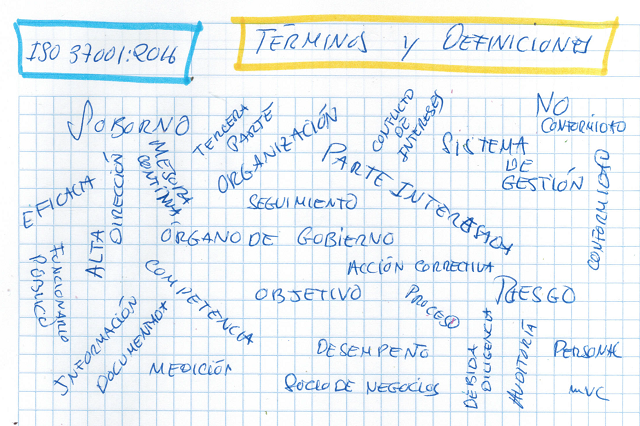 ISO 37001:2016
TÉRMINOS Y DEFINICIONES
SOBORNO
TERCERA
PARTE
CONFLICTO
DE
INTERESES
NO
CONFORMIDAD
MEJORA
CONTINUA
ORGANIZACIÓN
SISTEMA
DE
GESTIÓN
PARTE INTERESADA
EFICACIA
ALTA
DIRECCIÓN
SEGUIMIENTO
CONFORMIDAD
ORGANO DE GOBIERNO
FUNCIONARIO
PÚBLICO
ACCIÓN CORRECTIVA
COMPETENCIA
OBJETIVO
PROCESO
RIESGO
INFORMACIÓN
DOCUMENTADA
DESEMPEÑO
DEBIDA
DILIGENCIA
AUDITORÍA
PERSONAL
MEDICIÓN
SOCIO DE NEGOCIOS
mvc